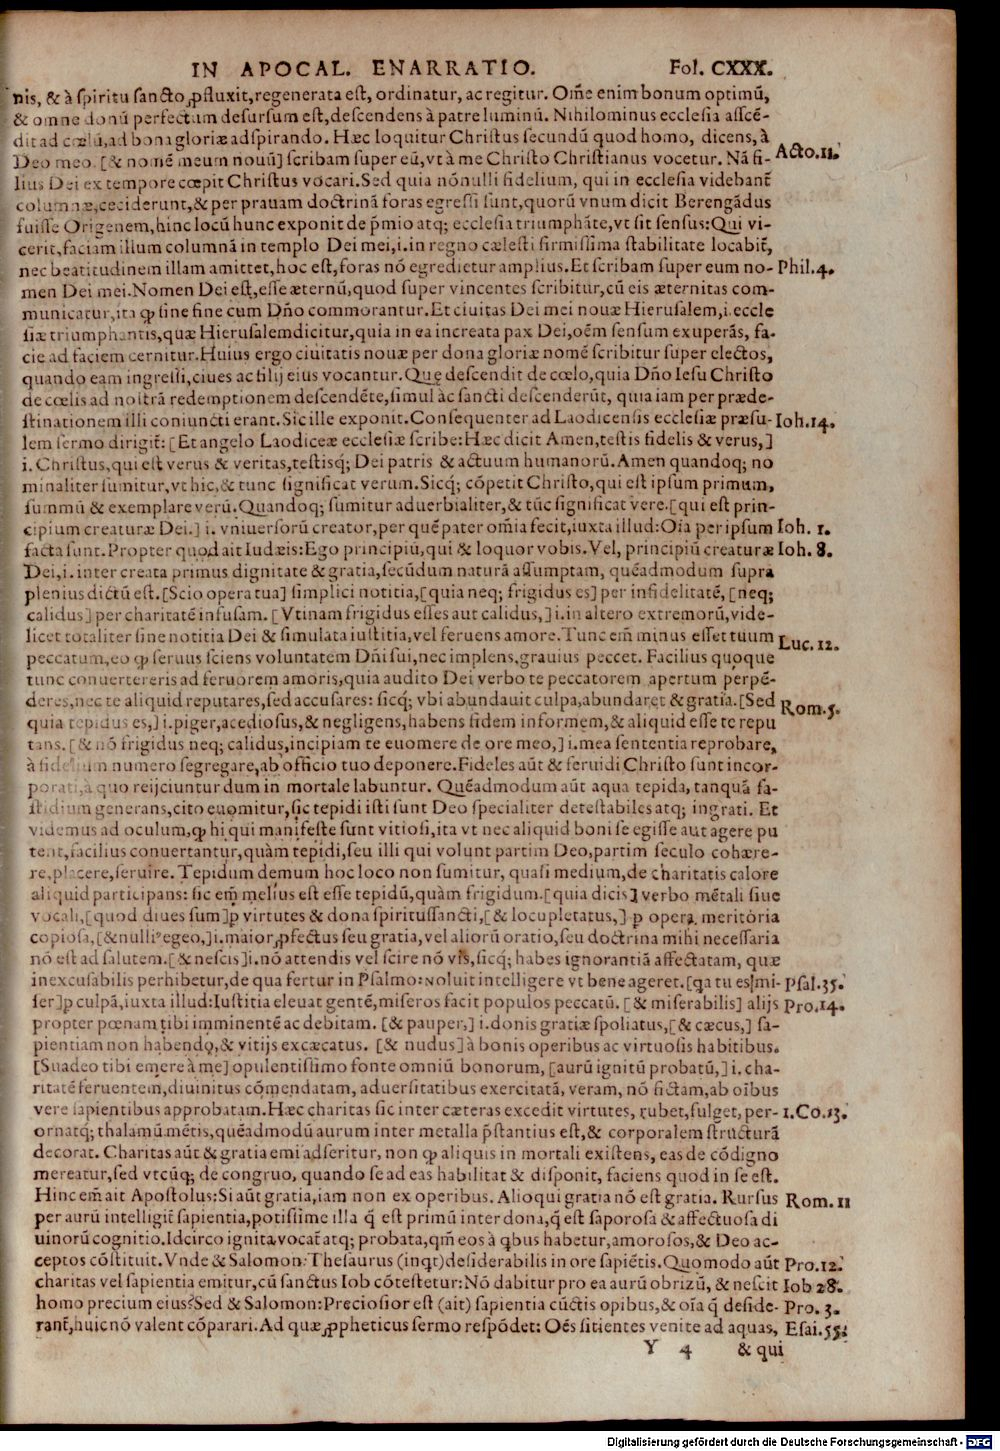 IN APOCAL. ENARRATIO. Fol. CXXX.
nis, & à spiritu sancto ꝓfluxit, regenerata est, ordinatur, ac regitur. Om̃e enim bonum optimũ,
& omne donũ perfectum desursum est, descendens à patre luminũ. Nihilominus ecclesia ascẽ-
dit ad cœlũ, ad bona gloriæ adspirando. Hæc loquitur Christus secundũ quod homo, dicens, à
Deo meo. [& nomẽ meum nouũ] scribam super eũ, vt à me Christo Christianus vocetur. Nã fi- Acto.11.
lius Dei ex tempore cœpit Christus vocari. Sed quia nõnulli fidelium, qui in ecclesia videbant̃
columnæ, ceciderunt, & per prauam doctrinã foras egressi sunt, quorũ vnum dicit Berengãdus
fuisse Origenem, hinc locũ hunc exponit de p̃mio atq; ecclesia triumphãte, vt sit sensus: Qui vi-
cerit, faciam illum columnã in templo Dei mei, i. in regno cælesti firmissima stabilitate locabit̃,
nec beatitudinem illam amittet, hoc est, foras nõ egredietur amplius. Et scribam super eum no- Phil.4.
men Dei mei. Nomen Dei est, esse æternũ, quod super vincentes scribitur, cũ eis æternitas com-
municatur, ita ꝙ sine fine cum Dño commorantur. Et ciuitas Dei mei nouæ Hierusalem, i. eccle
siæ triumphantis, quæ Hierusalem dicitur, quia in ea increata pax Dei, oẽm sensum exuperãs, fa-
cie ad faciem cernitur. Huius ergo ciuitatis nouæ per dona gloriæ nomẽ scribitur super electos,
quando eam ingressi, ciues ac filij eius vocantur. Quę descendit de cœlo, quia Dño Iesu Christo
de cœlis ad nostrã redemptionem descendẽte, simul ac sancti descenderũt, quia iam per præde-
stinationem illi coniuncti erant. Sic ille exponit. Consequenter ad Laodicensis ecclesiæ præsu- Ioh.14.
lem sermo dirigit̃: [Et angelo Laodiceæ ecclesiæ scribe: Hæc dicit Amen, testis fidelis & verus,]
i. Christus, qui est verus & veritas, testisq; Dei patris & actuum humanorũ. Amen quandoq; no
minaliter sumitur, vt hic, & tunc significat verum. Sicq; cõpetit Christo, qui est ipsum primum,
summũ & exemplare verũ. Quandoq; sumitur aduerbialiter, & tũc significat vere. [qui est prin-
cipium creaturæ Dei.] i. vniuersorũ creator, per quẽ pater om̃ia fecit, iuxta illud: Oĩa per ipsum Ioh. 1.
facta sunt. Propter quod ait Iudæis: Ego principiũ, qui & loquor vobis. Vel, principiũ creaturæ Ioh. 8.
Dei, i. inter creata primus dignitate & gratia, secũdum naturã assumptam, quẽadmodum supra
plenius dictũ est. [Scio opera tua] simplici notitia, [quia neq; frigidus es] per infidelitatẽ, [neq;
calidus] per charitatẽ infusam. [Vtinam frigidus esses aut calidus,] i. in altero extremorũ, vide-
licet totaliter sine notitia Dei & simulata iustitia, vel feruens amore. Tunc em̃ minus esset tuum Luc. 12.
peccatum, eo ꝙ seruus sciens voluntatem Dñi sui, nec implens, grauius peccet. Facilius quoque
tunc conuertereris ad feruorem amoris, quia audito Dei verbo te peccatorem apertum perpẽ-
deres, nec te aliquid reputares, sed accusares: sicq; vbi abundauit culpa, abundaret & gratia. [Sed Rom.5.
quia tepidus es,] i. piger, acediosus, & negligens, habens fidem informem, & aliquid esse te repu
tans. [& nõ frigidus neq; calidus, incipiam te euomere de ore meo,] i. mea sententia reprobare,
à fidelium numero segregare, ab officio tuo deponere. Fideles aũt & feruidi Christo sunt incor-
porati, à quo reijciuntur dum in mortale labuntur. Quẽadmodum aũt aqua tepida, tanquã fa-
stidium generans, cito euomitur, sic tepidi isti sunt Deo specialiter detestabiles atq; ingrati. Et
videmus ad oculum, ꝙ hi qui manifeste sunt vitiosi, ita vt nec aliquid boni se egisse aut agere pu
tent, facilius conuertantur, quàm tepidi, seu illi qui volunt partim Deo, partim seculo cohære-
re, placere, seruire. Tepidum demum hoc loco non sumitur, quasi medium, de charitatis calore
aliquid participans: sic em̃ melius est esse tepidũ, quàm frigidum. [quia dicis] verbo mẽtali siue
vocali, [quod diues sum] ꝑ virtutes & dona spiritussancti, [& locupletatus,] ꝑ opera meritoria
copiosa, [& nulliꝰ egeo,] i. maior ꝓfectus seu gratia, vel aliorũ oratio, seu doctrina mihi necessaria
nõ est ad salutem. [& nescis] i. nõ attendis vel scire nõ vis, sicq; habes ignorantiã affectatam, quæ
inexcusabilis perhibetur, de qua fertur in Psalmo: noluit intelligere vt bene ageret. [qa tu es mi- Psal.35.
ser] ꝑ culpã, iuxta illud: Iustitia eleuat gentẽ, miseros facit populos peccatũ. [& miserabilis] alijs Pro.14.
propter pœnam tibi imminentẽ ac debitam. [& pauper,] i. donis gratiæ spoliatus, [& cæcus,] sa-
pientiam non habendo, & vitijs excæcatus. [& nudus] à bonis operibus ac virtuosis habitibus.
[Suadeo tibi emere à me] opulentissimo fonte omniũ bonorum, [aurũ ignitũ probatũ,] i. cha-
ritatẽ feruentem, diuinitus cõmendatam, aduersitatibus exercitatã, veram, nõ fictam, ab oĩbus
vere sapientibus approbatam. Hæc charitas sic inter cæteras excedit virtutes, rubet, fulget, per- 1.Co.13.
ornatq; thalamũ mẽtis, quẽadmodũ aurum inter metalla p̃stantius est, & corporalem structurã
decorat. Charitas aũt & gratia emi adseritur, non ꝙ aliquis in mortali existens, eas de cõdigno
mereatur, sed vtcũq; de congruo, quando se ad eas habilitat & disponit, faciens quod in se est.
Hinc em̃ ait Apostolus: Si aũt gratia, iam non ex operibus. Alioqui gratia nõ est gratia. Rursus Rom. 11
per aurũ intelligit̃ sapientia, potissime illa q̃ est primũ inter dona, q̃ est saporosa & affectuosa di
uinorũ cognitio. Idcirco ignita vocat̃ atq; probata, qm̃ eos à qbus habetur, amorosos, & Deo ac-
ceptos cõstituit. Vnde & Salomon: Thesaurus (inqt) desiderabilis in ore sapiẽtis. Quomodo aũt Pro.12.
charitas vel sapientia emitur, cũ sanctus Iob cõtestetur: Nõ dabitur pro ea aurũ obrizũ, & nescit Iob 28.
homo precium eius? Sed & Salomon: Preciosior est (ait) sapientia cũctis opibus, & oĩa q̃ deside- Pro. 3.
rant̃, huic nõ valent cõparari. Ad quæ ꝓpheticus sermo respõdet: Oẽs sitientes venite ad aquas, Esai.55.
Y 4 & qui
Digitalisierung gefördert durch die Deutsche Forschungsgemeinschaft - DFG